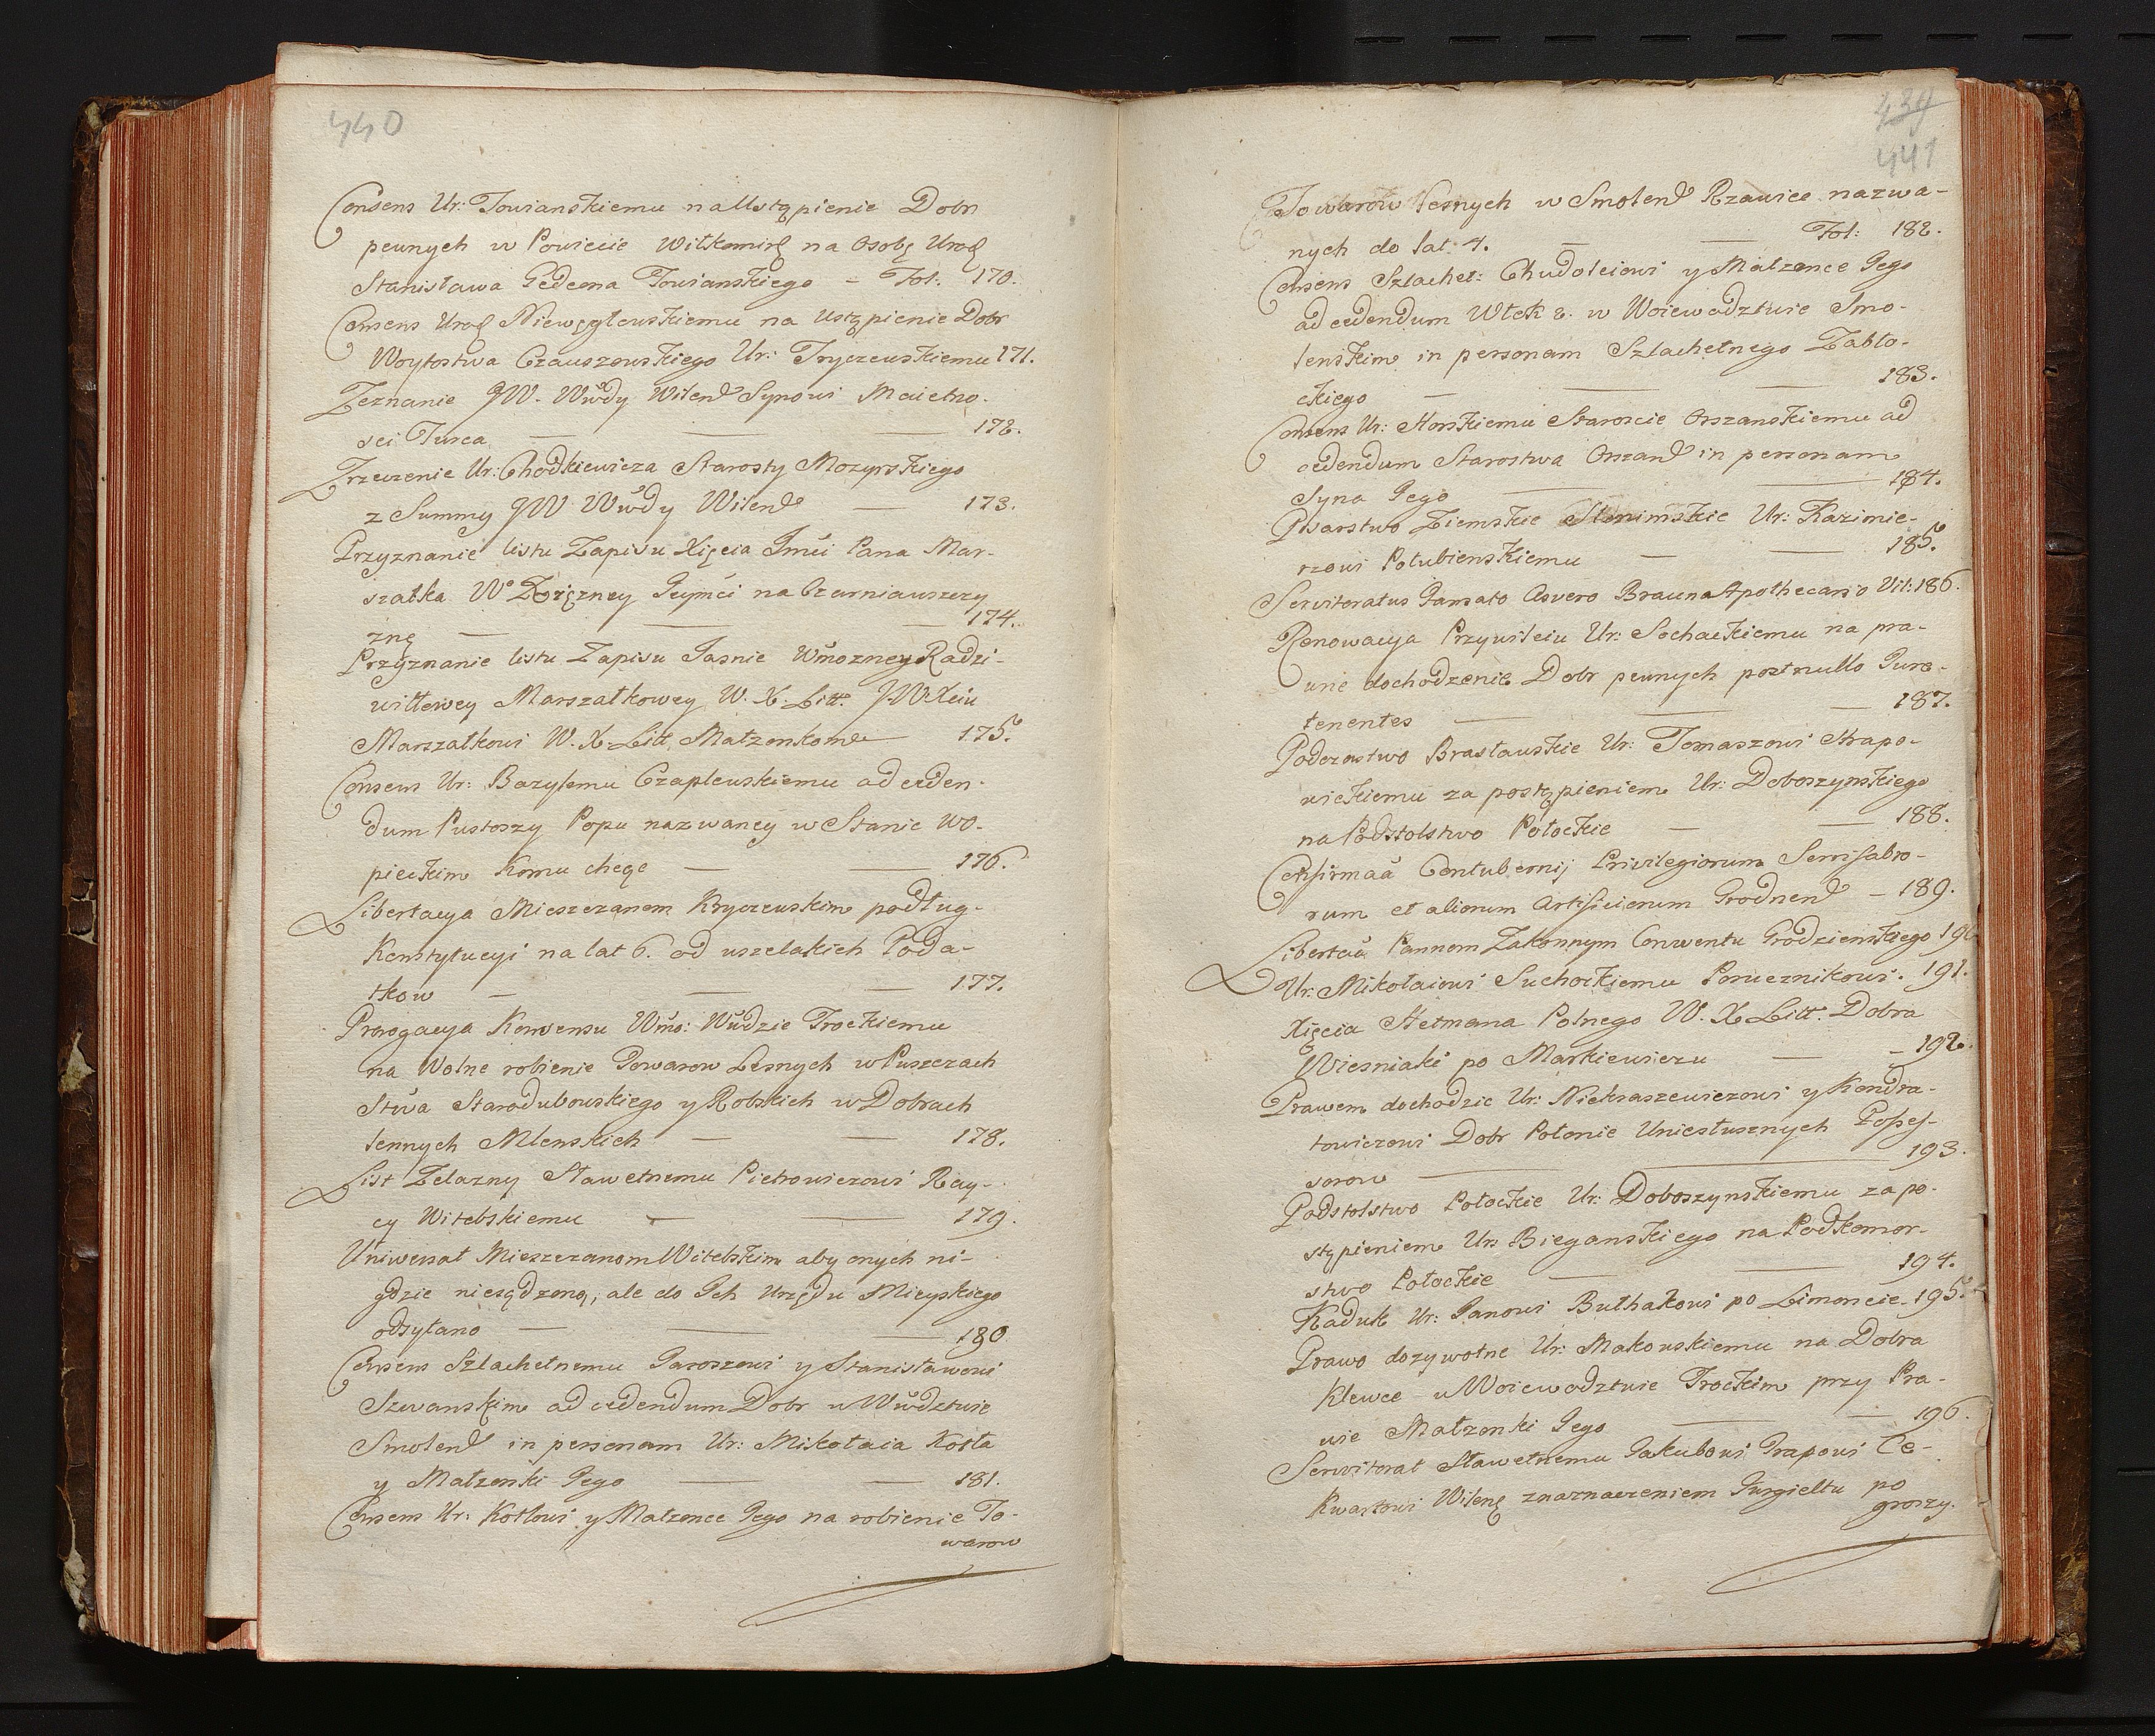 440
Consens Ur: Towianskiemu na Ustąpienie Dobr
pewnych w Powiecie Wilkomir na Osobę Urod
Stanisława Gedeona Towianskiego – Fol: 170.
Consens Urod Niewęgleuskiemu na ustąpienie Dobr
Woytostwa Czauszowskiego Ur: Tryczewskiemu 171.
Zeznanie JW. Wwdy Wilend Synowi Maietno-
sci Turca 172.
Zrzeczenie Ur: Chodkiewicza Starosty Mozyrskiego
z Summy JW Wwdy Wilend 173.
Przyznanie listu Zapisu Xięcia Jmći Pana Mar-
szałka W° Xiężney Jeymći na Czarniawszczy
znę 174.
Przyznanie listu Zapisu Jasnie Wmozney Radzi-
wiłłowey Marszałkowey W. X. Litt. JW Xciu
Marszałkowi W. X. Litt. Małzonkom 175.
Consens Ur: Bazylemu Czaplewskiemu ad ceden-
dum Pustoszy Popu nazwaney w Stanie Wo-
pieckim Komu chcąc 176.
Libertacya Mieszczanom Kryczewskim podług
Konstytucyi na lat 6. od wszelakich Poda-
tkow 177.
Prorogacya Konsensu Wmo: Wwdzie Trockiemu
na Wolne robienie Towarow Lesnych w Puszczach
Stwa Starodubowskiego y Robskich w Dobrach
lennych Mlenskich 178.
List Zelazny Sławetnemu Pietrowiczowi Ray-
cy Witebskiemu 179.
Uniwersał Mieszczanom Witebskim aby onych ni-
gdzie niesądzono, ale do Ich Urzędu Mieyskiego
odsyłano 180
Consens Szlachetnemu Jaroszowi y Stanisławowi
Szewanskim ad cedendum Dobr w Wwdztwie
Smolend in personam Ur: Mikołaia Kotła
y Małzonki Jego 181.
Consens Ur: Kotłowi y Małzonce Jego na robienie To-
warow
439
441
Towarow Lesnych w Smolend Rzawice nazwa-
nych do lat 4. Fol: 182.
Consens Szlachet: Chudoleiowi y Małzonce Jego
ad cedendum Włok 2. w Woiewodztwie Smo-
lenskim in personam Szlachetnego Zabło-
ckiego 183.
Consens Ur: Horskiemu Staroscie Orszanskiemu ad
cedendum Starostwa Orszand in personam
Syna Jego 184.
Pisarstwo Ziemskie Słonimskie Ur: Kazimie-
rzowi Połubienskiemu 185.
Servitoratus Famato Asvero Brauna Apothecario Vil: 186.
Renowacya Przywileiu Ur: Sochackiemu na pra-
wne dochodzenie Dobr pewnych post nullo Jure
tenentes 187.
Podczastwo Brasławskie Ur: Tomaszowi Hrapo-
wickiemu za postąpieniem Ur: Doboszynskiego
na Podstolstwo Połockie 188.
Confirmaa Contubernij Privilegiorum Serrifabro-
rum et aliorum Artificierum Grodnend – 189.
Libertaa Pannom Zakonnym Conwentu Grodzienskiego 190
Ur: Mikołaiowi Suchockiemu Porucznikowi. 191.
Xięcia Hetmana Polnego W. X. Litt. Dobra
Wiesniaki po Markiewiczu 192.
Prawem dochodzic Ur: Niekraszewiczowi y Kondra-
towiczowi Dobr Połonie Uniesłusznych Posses-
sorow 193.
Podstolstwo Połockie Ur: Doboszynskiemu za po-
stąpieniem Ur: Bieganskiego na Podkomor-
stwo Połockie 194.
Kaduk Ur: Janowi Bułhakowi po Limoncie. 195.
Prawo dozywotne Ur: Makowskiemu na Dobra
Klewce w Woiewodztwie Trockim przy Pra-
wie Małzonki Jego 196.
Serwitorat Sławetnemu Jakubowi Grapowi Ce-
Kwartowi Wilend znaznaczeniem Jurgieltu po
groszy.